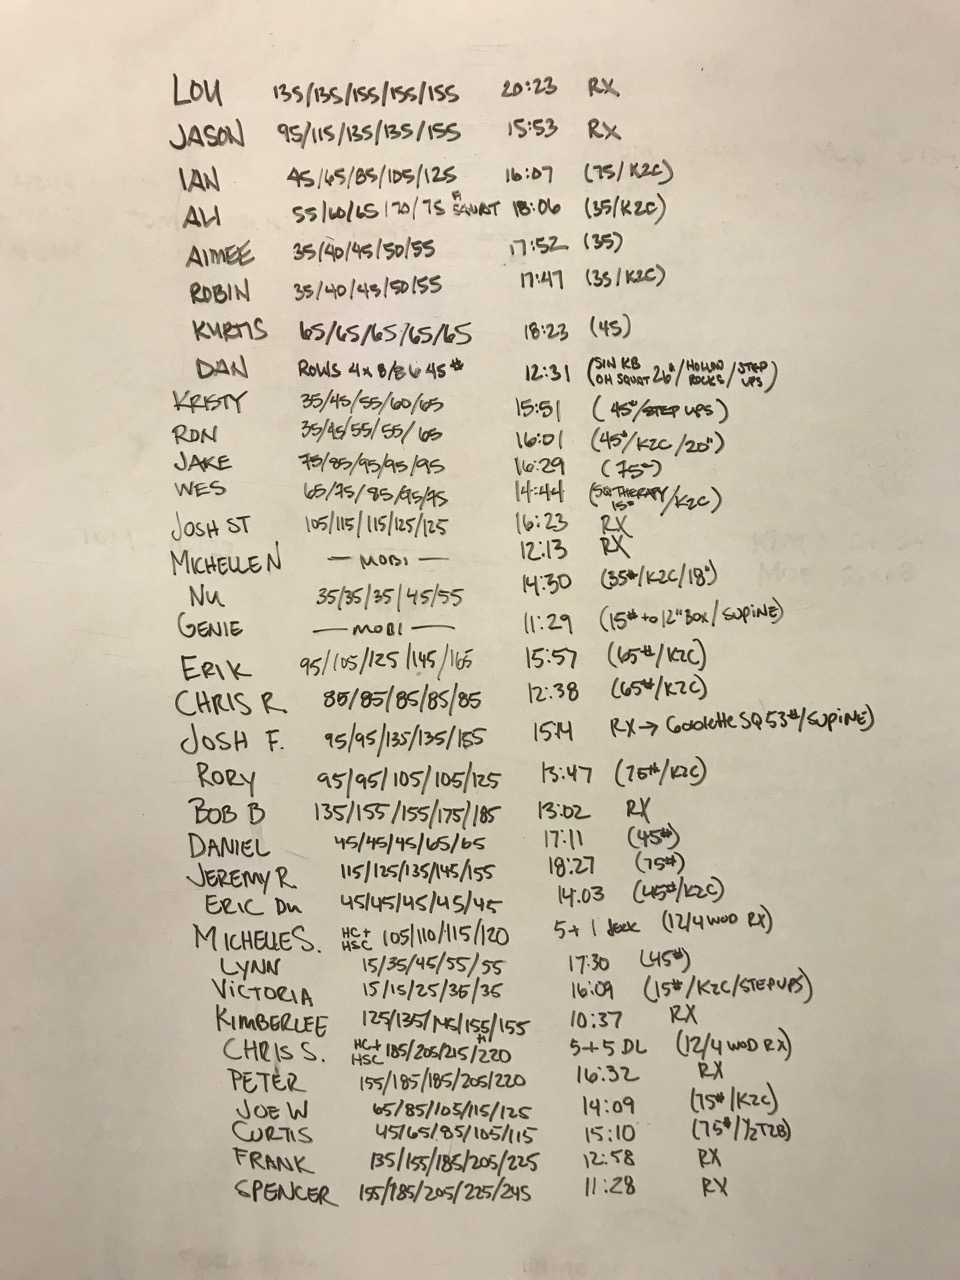 LOU 135/135/155/155/155 20:23 RX
JASON 95/115/135/135/155 15:53 RX
IAN 45/65/85/105/125 16:07 (75/K2C)
ALI 55/60/65/70/75 SQUAT 18:06 (35/K2C)
AIMEE 35/40/45/50/55 17:52 (35)
ROBIN 35/40/45/50/55 17:47 (35/K2C)
KURTIS 65/65/65/65/65 18:23 (45)
DAN ROWS 4x8/8 45# 12:31 (SIN KB OH SQUAT 26#/HOLLOW ROCKS/STEP UPS)
KRISTY 35/45/55/60/65 15:51 (45#/STEP UPS)
RON 35/45/55/55/65 16:01 (45#/K2C/20")
JAKE 75/85/95/95/95 16:29 (75#)
WES 65/75/85/95/95 14:44 (SQ THERAPY 15#/K2C)
JOSH ST 105/115/115/125/125 16:23 RX
MICHELLE N — MOBI — 12:13 RX
NU 35/35/35/45/55 14:30 (35#/K2C/18")
GENIE — MOBI — 11:29 (15# to 12" BOX/SUPINE)
ERIK 95/105/125/145/165 15:57 (65#/K2C)
CHRIS R. 85/85/85/85/85 12:38 (65#/K2C)
JOSH F. 95/95/135/135/155 15:14 RX → GOBLETTE SQ 53#/SUPINE)
RORY 95/95/105/105/125 13:47 (75#/K2C)
BOB B 135/155/155/175/185 13:02 RX
DANIEL 45/45/45/65/65 17:11 (45#)
JEREMY R. 115/125/135/145/155 18:27 (75#)
ERIC DU 45/45/45/45/45 14:03 (45#/K2C)
MICHELLE S. HC+ HSC 105/110/115/120 5+1 Jerk (12/4 WOD RX)
LYNN 15/35/45/55/55 17:30 (45#)
VICTORIA 15/15/25/35/35 16:09 (15#/K2C/STEP UPS)
KIMBERLEE 125/135/145/155/155 10:37 RX
CHRIS S. HC+ HSC 185/205/215/220 5+5 DL (12/4 WOD RX)
PETER 155/185/185/205/220 16:32 RX
JOE W 65/85/105/115/125 14:09 (75#/K2C)
CURTIS 45/65/85/105/115 15:10 (75#/½T2B)
FRANK 135/155/185/205/225 12:58 RX
SPENCER 155/185/205/225/245 11:28 RX